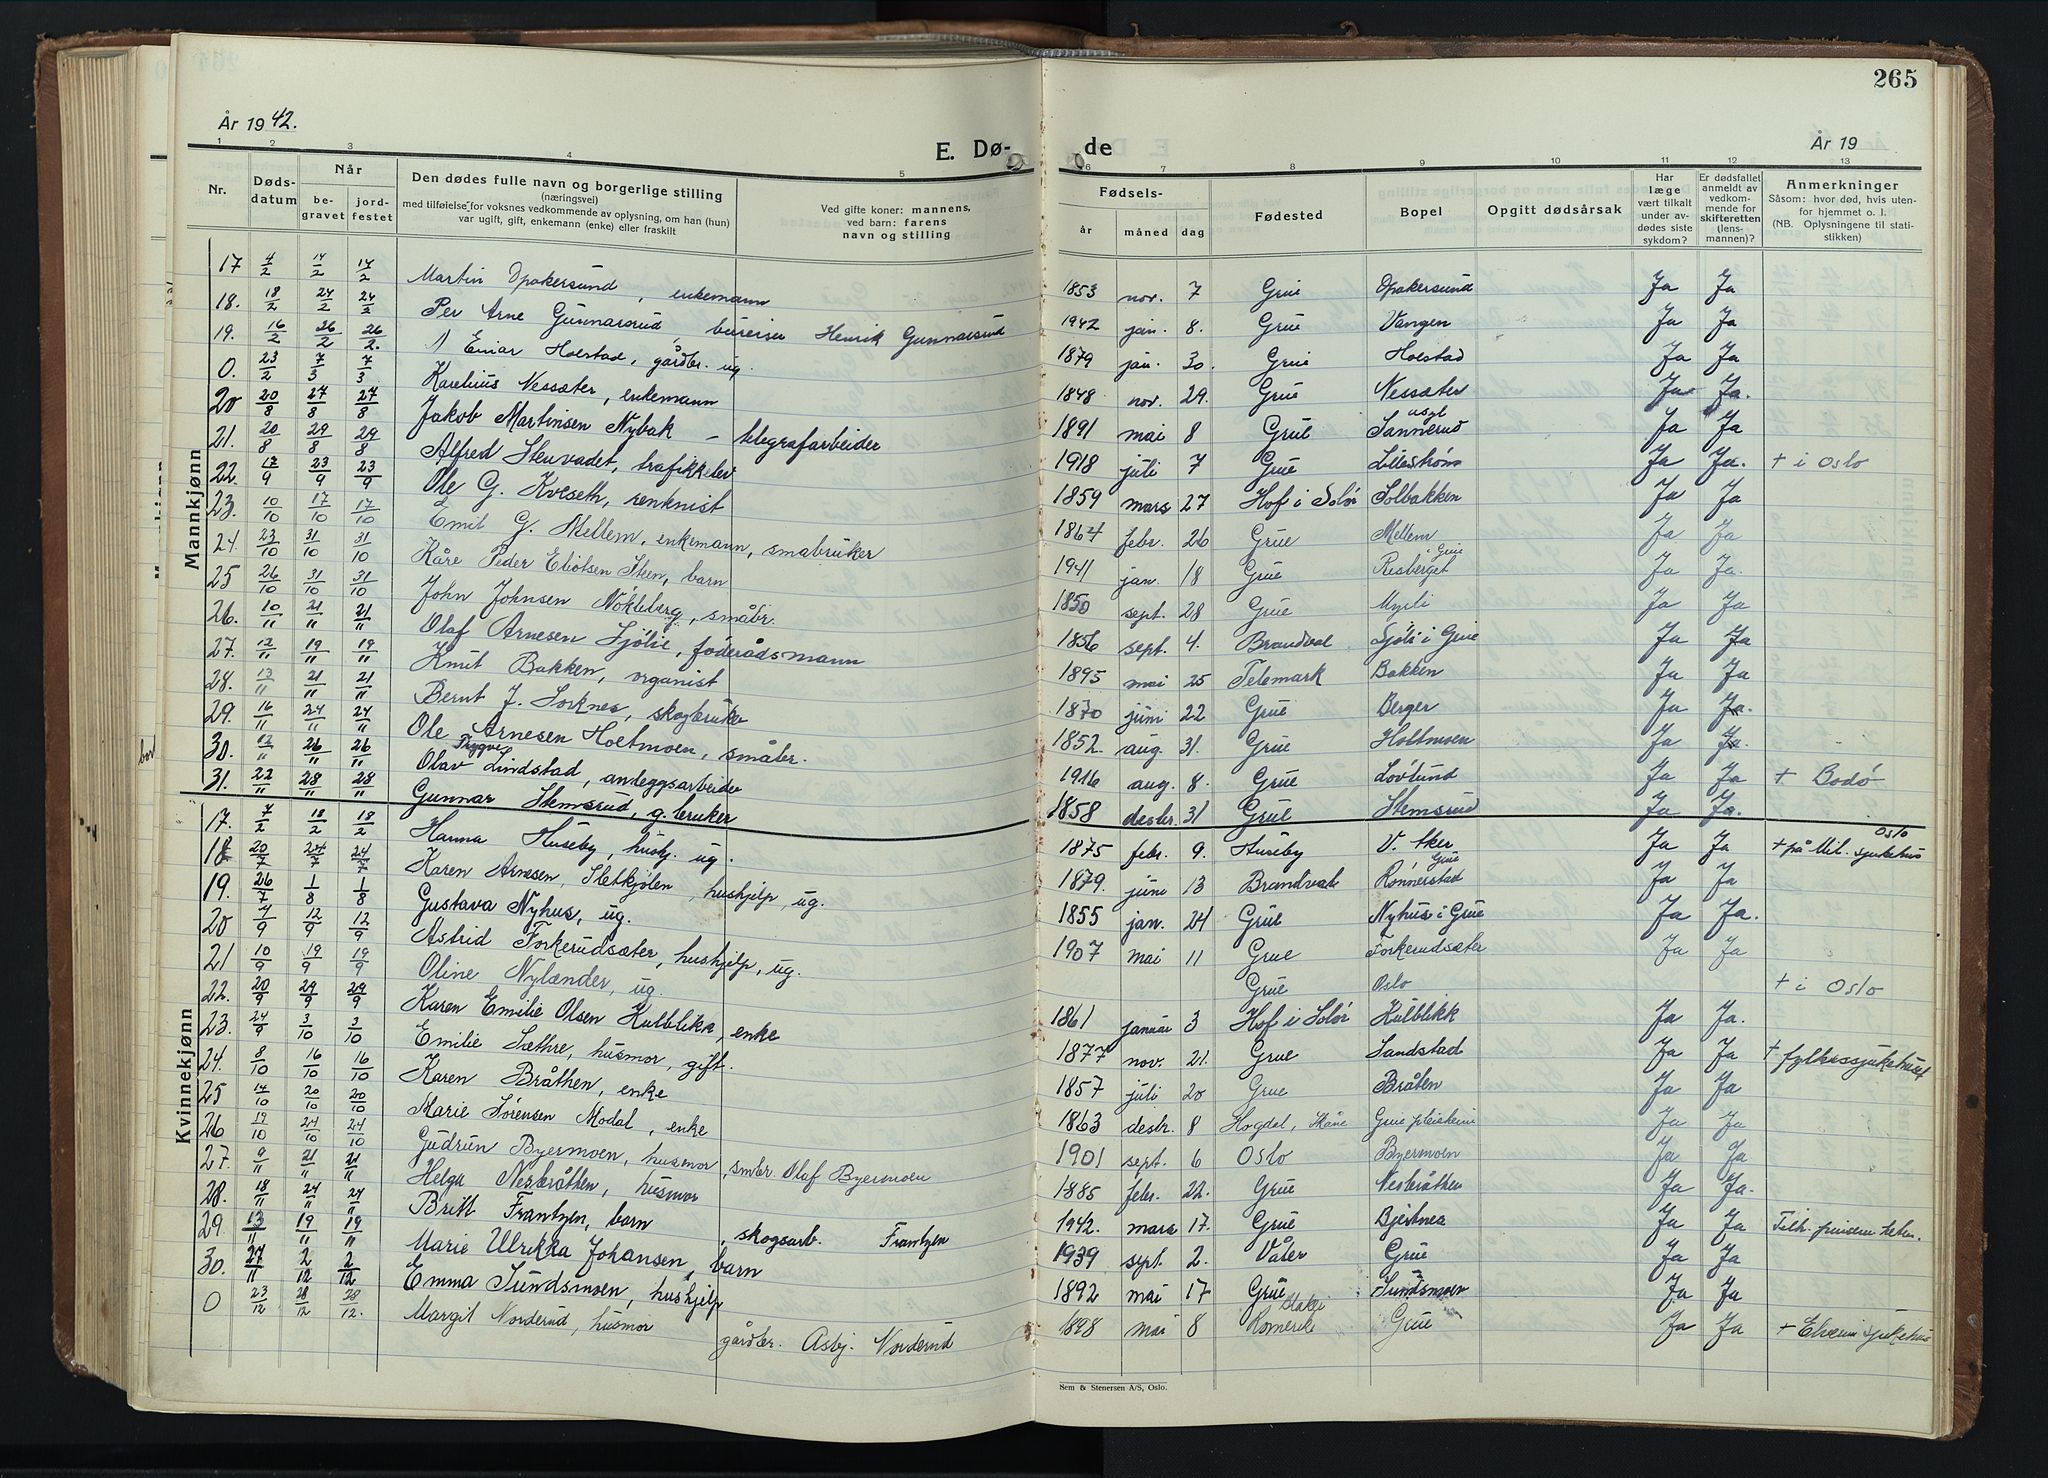 265
År 1942.
E. Dø-
de
År 19
1 2 3 4 5 6 7 8 9 10 11 12 13
Nr.
Døds-
datum
Når
be-
gravet
jord-
festet
Den dødes fulle navn og borgerlige stilling
(næringsvei)
med tilføielse for voksnes vedkommende av oplysning, om han (hun)
var ugift, gift, enkemann (enke) eller fraskilt
Ved gifte koner: mannens,
ved barn: farens
navn og stilling
Fødsels-
år måned dag
Fødested
Bopel
Opgitt dødsårsak
Har
læge
vært tilkalt
under av-
dødes siste
sykdom?
Er dødsfallet
anmeldt av
vedkom-
mende for
skifteretten
(lens-
mannen)?
Anmerkninger
Såsom: hvor død, hvis uten-
for hjemmet o. l.
(NB. Oplysningene til stati-
stikken)
Mannkjønn
17 4/2 14/2 14/2 Martin Opakersund, enkemann 1853 nov. 7 Grue Opakersund Ja Ja
18. 18/2 24/2 24/2 Per Arne Gunnarsrud, bureiser Henrik Gunnarsrud 1942 jan. 8. Grue Vangen Ja Ja
19. 16/2 26/2 26/2. Einar Holstad, gårdbr. ug. 1879 jan. 30. Grue Holstad Ja Ja
0. 23/2 7/3 7/3 Karelius Nessæter, enkemann 1848 nov. 29. Grue Nessæter Ja Ja.
20 20/8 27/8 27/8 Jakob Martinsen Nybak – telegrafarbeider 1891 mai 8 Grue Sannerud Ja Ja
21. 20/8 29/8 29/8 Alfred Stenvadet, trafikklev 1918 juli 7 Grue Lillestrøm Ja Ja. + i Oslo
22. 17/9 23/9 23/9 Ole G. Kveseth, renknist 1859 mars 27 Hof i Solør Solbakken Ja Ja
23. 10/10 17/10 17/10 Emil G. Mellem, enkemann, småbruker 1864 febr. 26 Grue Mellem Ja Ja
24. 23/10 31/10 31/10 Kåre Peder Eliotsen Steen, barn 1941 jan. 18 Grue Risberget i Grue Ja Ja.
25 26/10 31/10 31/10 John Johnsen Nökleberg, småbr. 1850 sept. 28 Grue Myrli Ja Ja
26. 10/11 21/11 21/11 Olaf Arnesen Sjölie, föderådsmann 1856 sept. 4. Brandval Sjöli i Grue Ja Ja
27. 12/11 19/11 19/11 Knut Bakken, organist 1895 mai 25 Telemark Bakken Ja Ja
28. 13/11 21/11 21/11 Bernt J. Sorknes, skogbruker 1870 juni 22 Grue Berger Ja Ja.
29. 16/11 24/11 24/11 Ole Arnesen Holtmoen, småbr. 1852. aug. 31. Grue Holtmoen Ja Ja.
30. 12/" 26/11 26/11 Olav Trygve Lindstad, anleggsarbeider 1916 aug. 8. Grue Lövlund Ja Ja + Bodö
31. 22/" 28/" 28/" Gunnar Stemsrud, g. bruker 1858 desbr. 31 Grue Stemsrud Ja Ja.
Kvinnekjønn
17. 7/2 18/2 18/2 Hanna Huseby, hushj. ug. 1875 febr. 9. Huseby V. Aker Ja Ja + på Mil. sjukehus Oslo
18 20/7 24/7 24/7 Karen Arnesen Sletkjölen, hushjelp, ug. 1879. juni 13 Brandval Rönnerstad Grue Ja Ja
19. 26/7 1/8 1/8 Gustava Nyhus, ug. 1855 jan. 24 Grue Nyhus i Grue Ja Ja.
20 4/9 12/9 12/9 Astrid Forkerudsæter, hushjelp, ug. 1907 mai 11 Grue Forkerudsæter Ja Ja
21 10/9 19/9 19/9 Oline Nylænder, ug. Grue Oslo + i Oslo
22. 20/9 29/9 29/9 Karen Emilie Olsen Kulblikk, enke 1861 januar 3 Hof i Solör Kulblikk Ja Ja.
23. 24/9 3/10 3/10 Emilie Sæthre, husmor, gift. 1877 nov. 21. Grue Sandstad Ja Ja + fylkessjukehuset
24. 8/10 16/10 16/10 Karen Bråthen, enke 1857 juli 20 Grue Bråten Ja Ja
25 14/10 20/10 20/10 Marie Sörensen Modal, enke 1863 desbr. 8 Hogdal, Skåne Grue pleieheim Ja Ja
26 19/10 24/10 24/10 Gudrun Byermoen, husmor, smbr. Olaf Byermoen 1901 sept. 6 Oslo Byermoen Ja Ja
27. 9/11 21/11 21/11 Helga Nesbråthen, husmor 1885 febr. 22. Grue Nesbråthen Ja Ja.
28. 18/11 24/" 24/" Britt Frantzen, barn, skogsarb. Frantzen 1942. mars 17. Grue Bjertnes Ja Ja
29. 13/11 19/11 19/11 Marie Ulrikka Johansen, barn 1939 sept. 2. Våler Grue Ja Ja
30. 27/11 2/12 2/12 Emma Sundsmoen, hushjelp 1892 mai 17 Grue Sundsmoen Ja Ja
0 23/12 28/12 28/12. Margit Norderud, husmor gårdbr. Asbj. Norderud 1898 mai 8 Romerike Grue Ja Ja + Elverum sjukehus
Sem & Stenersen A/S, Oslo.